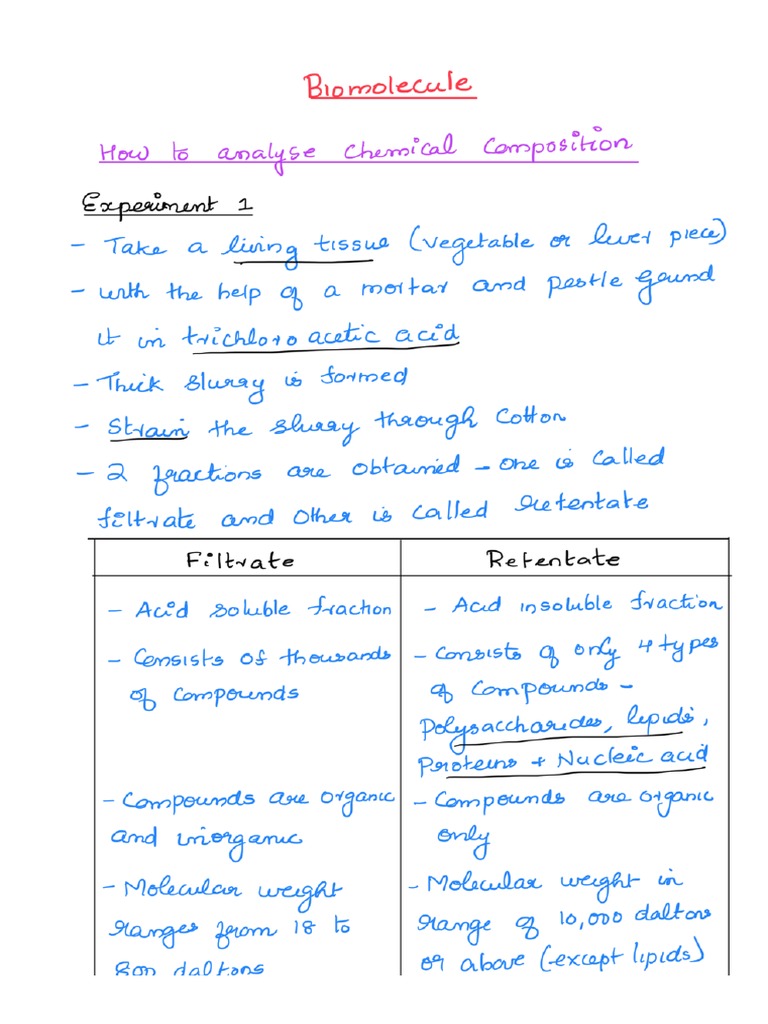 Biomolecule
How to analyse chemical composition
Experiment 1
- Take a living tissue (vegetable or liver piece)
- with the help of a mortar and pestle grund
it in trichloro acetic acid
- Thick slurry is formed
- Strain the slurry through cotton
- 2 fractions are obtained - one is called
filtrate and other is called retentate
Filtrate
- Acid soluble fraction
- Consists of thousands
of compounds
- Compounds are organic
and inorganic
- Molecular weight
ranges from 18 to
800 daltons
Retentate
- Acid insoluble fraction
- Consists of only 4 types
of compounds -
Polysaccharides, lipids,
Proteins + Nucleic acid
- Compounds are organic
only
- Molecular weight in
range of 10,000 daltons
or above (except lipids)